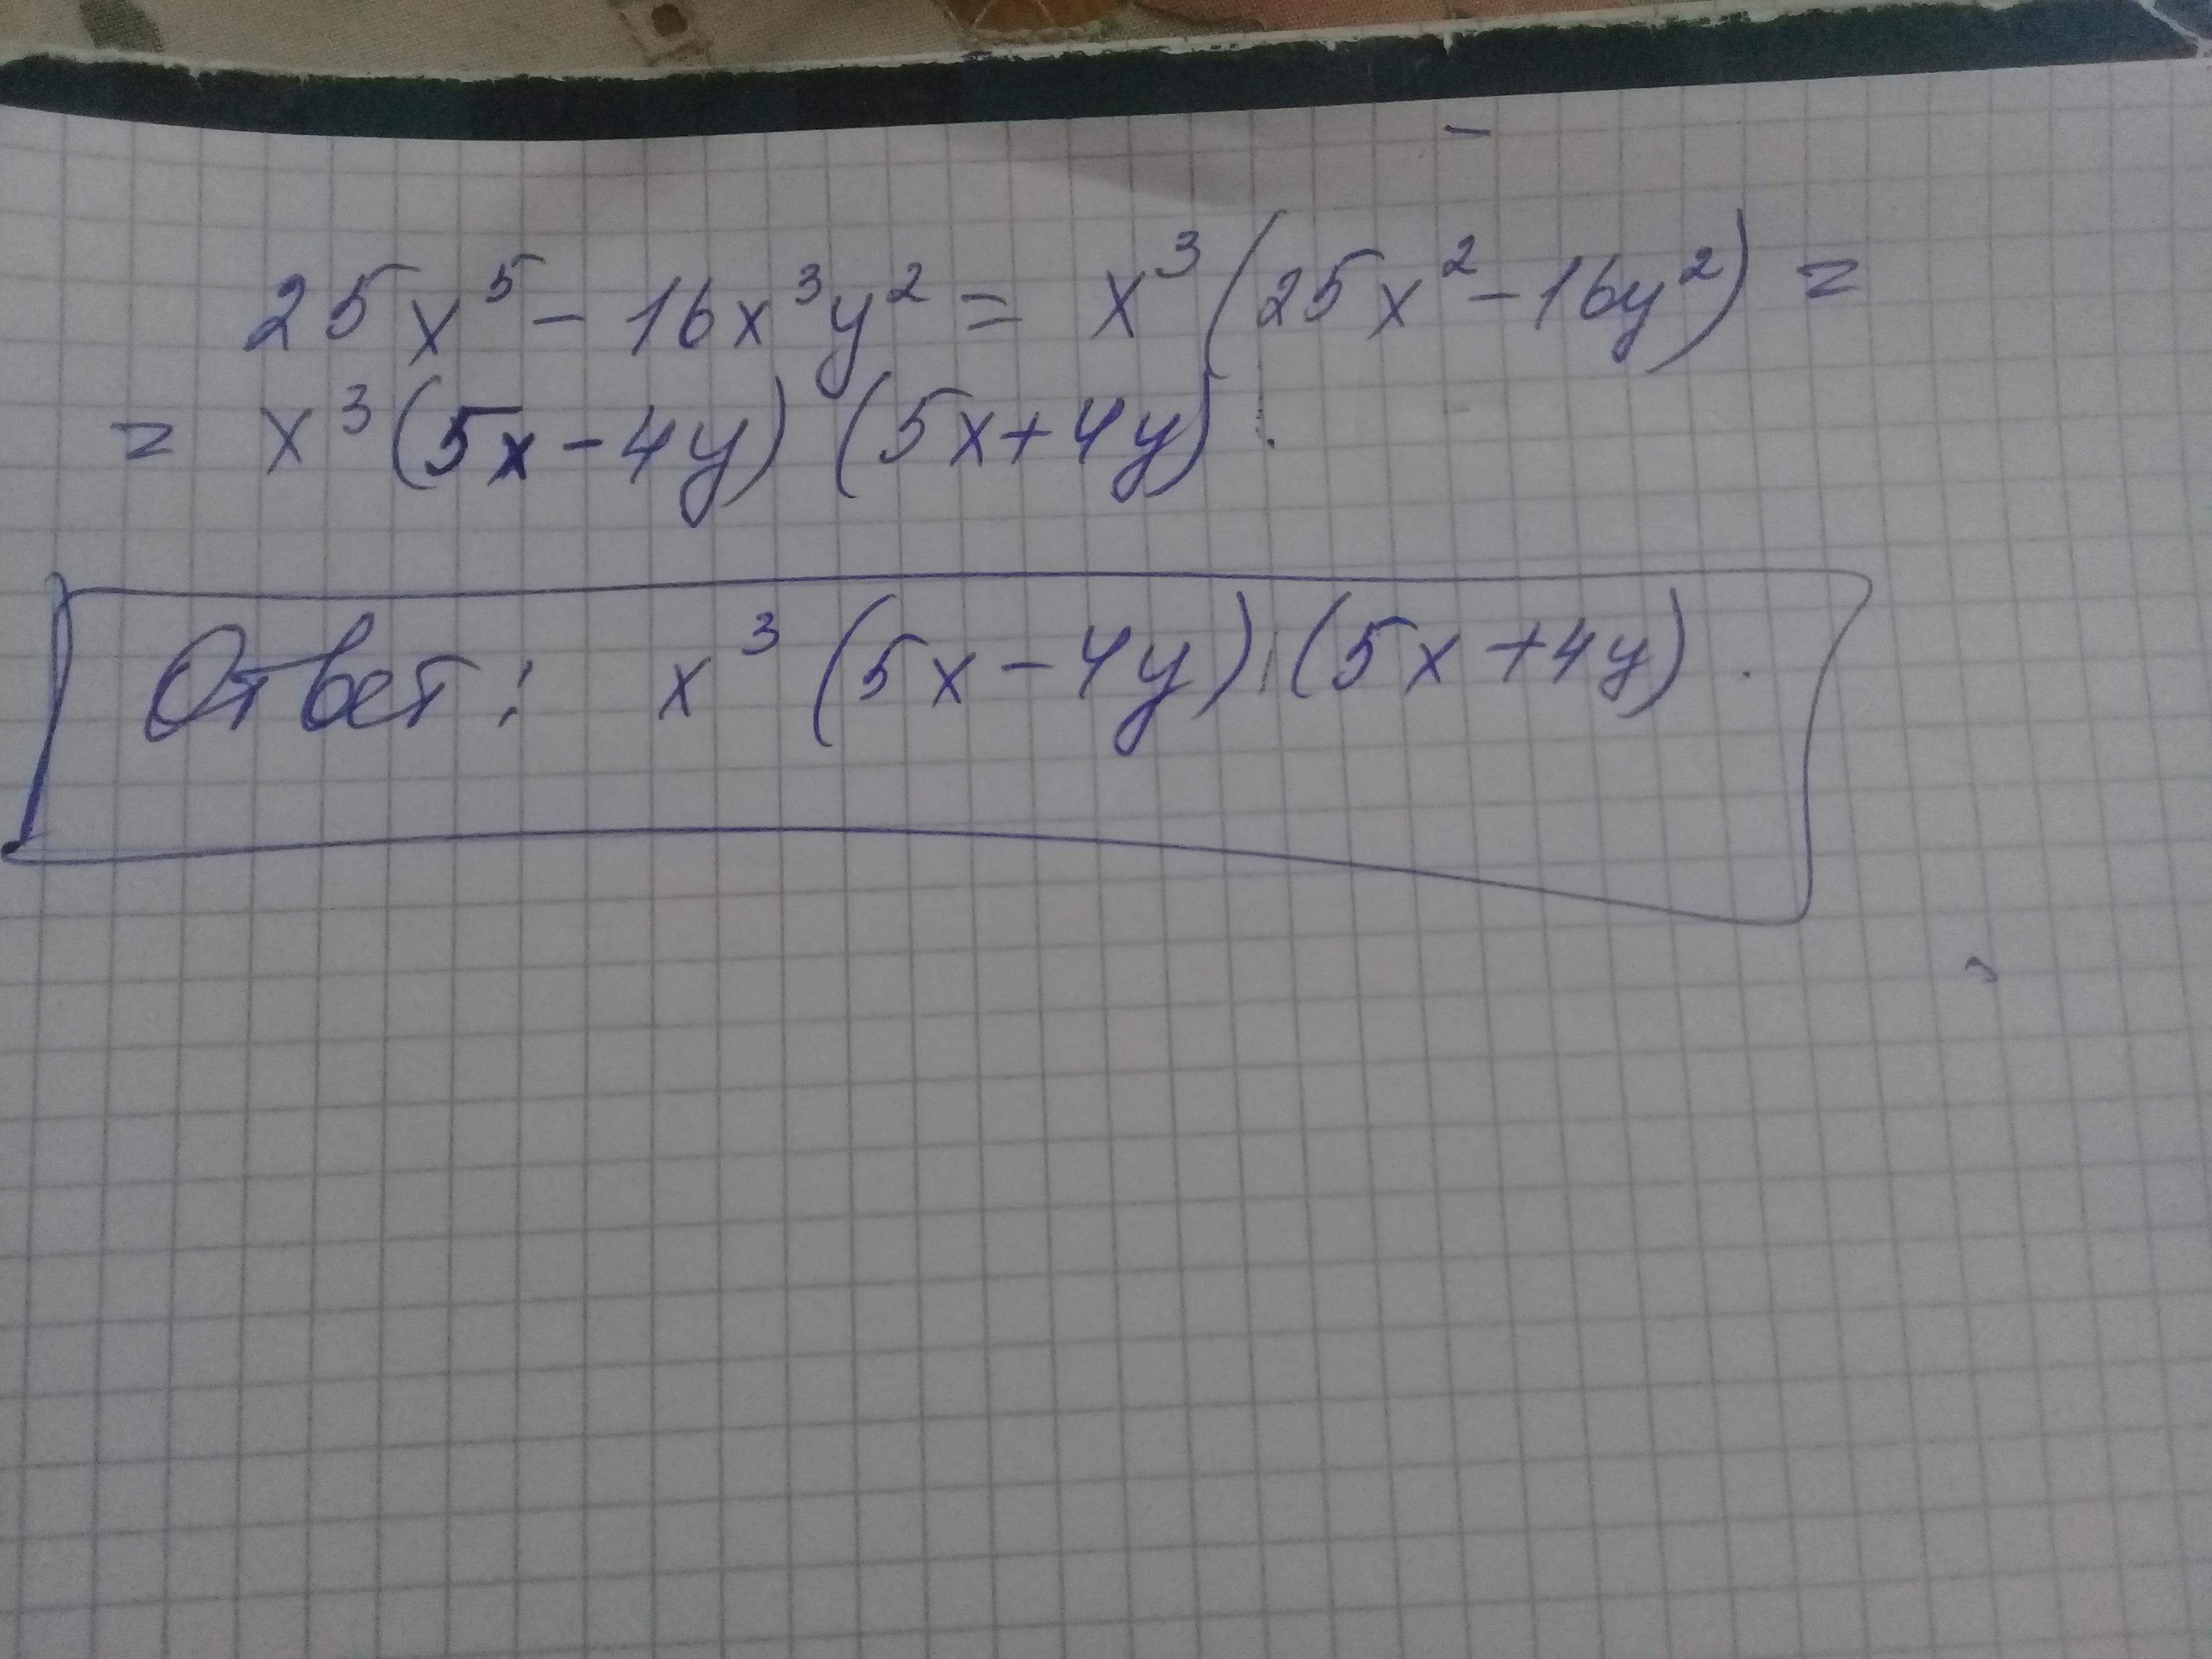 25x⁵ - 16x³y² = x³(25x² - 16y²) =
= x³(5x - 4y) (5x + 4y).
Ответ: x³ (5x - 4y) (5x + 4y).